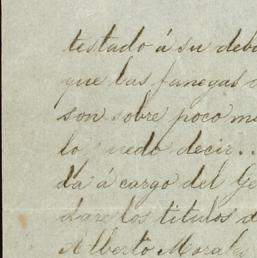 testado á su deb
que las fanegas
son sobre poco m
lo puedo decir..
da á cargo del Ge
dare los titulos d
Alberto Morale